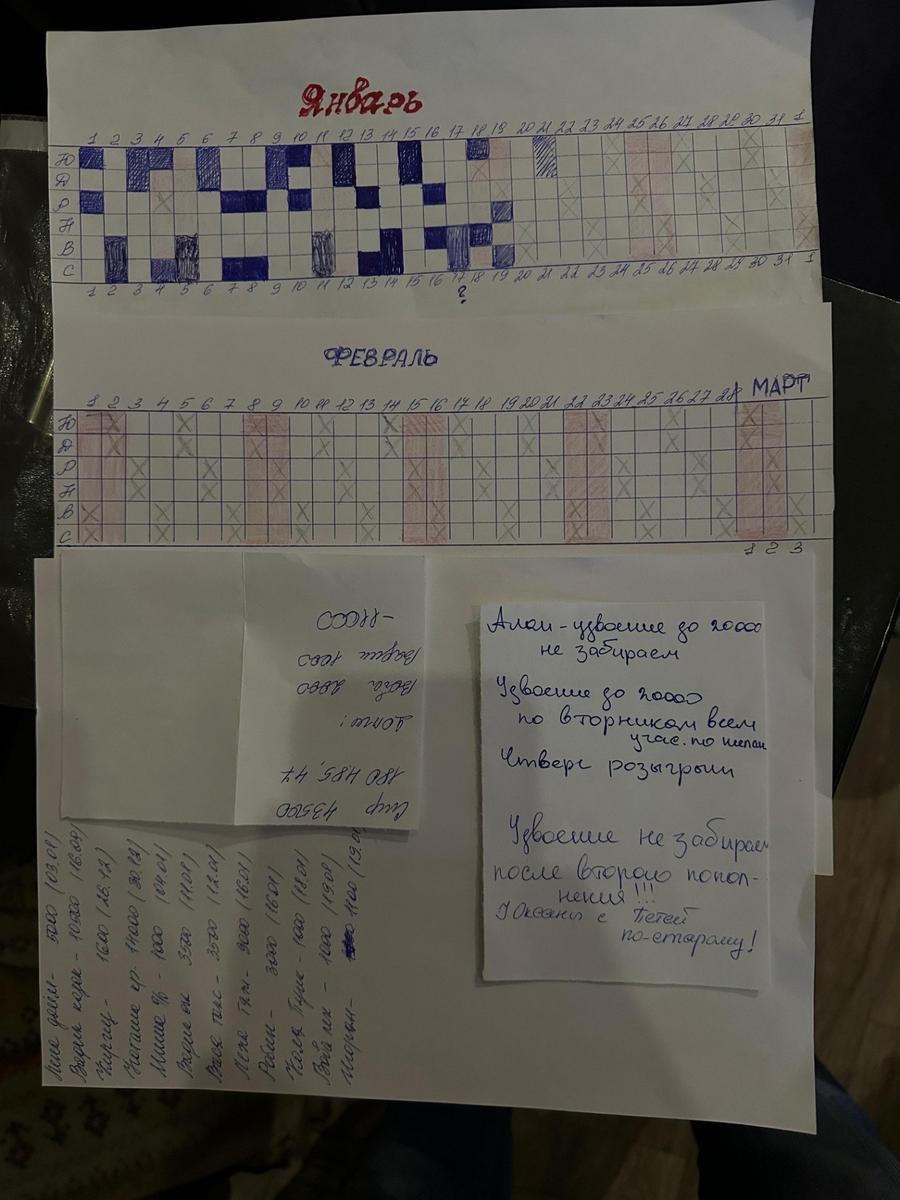 Январь
1 2 3 4 5 6 7 8 9 10 11 12 13 14 15 16 17 18 19 20 21 22 23 24 25 26 27 28 29 30 31 1
Ю
Д
Р
Н
В
С
1 2 3 4 5 6 7 8 9 10 11 12 13 14 15 16 17 18 19 20 21 22 23 24 25 26 27 28 29 30 31 1
?
ФЕВРАЛЬ
МАРТ
1 2 3 4 5 6 7 8 9 10 11 12 13 14 15 16 17 18 19 20 21 22 23 24 25 26 27 28
Ю
Д
Р
Н
В
С
1 2 3
43500
180 485,47
Долги:
Вова 2000
1000
-11000
удвоение до 20000
не забираем
Удвоение до 20000
по вторникам всем
учас. по
Четверг розыгрыш
Удвоение не забираем
после второго попол-
нения!!!
У Оксаны с Петей
по-старому!
5000 (03.01)
Вадик 10500
1600 (26.12)
Наташа 14000
Миша 1000 (04.01)
3500 (11.01)
Вася 3500 (12.01)
Лена 3000 (16.01)
Робин - 3000 (16.01)
Коля 1000 (18.01)
Вова 1000 (19.01)
1100 (19.01